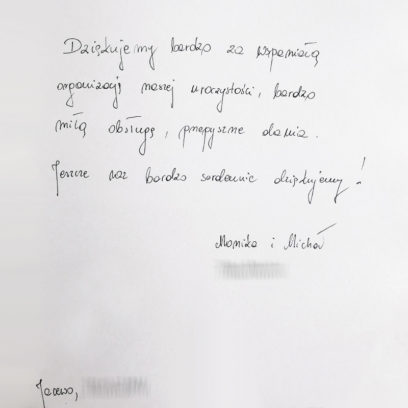 Dziękujemy bardzo za wspaniałą
organizację naszej uroczystości, bardzo
miłą obsługę, przepyszne dania.
Jeszcze raz bardzo serdecznie dziękujemy!
Monika i Michał